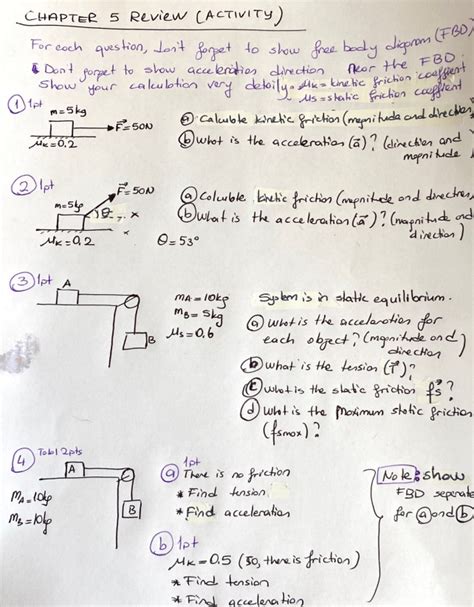 CHAPTER 5 REVIEW (ACTIVITY)
For each question, don't forget to show free body diagram (FBD)
Don't forget to show acceleration direction near the FBD
Show your calculation very detaily.
μk = kinetic friction coefficient
μs = static friction coefficient
① 1pt
m=5kg
F=50N
μk=0.2
ⓐ Calculate kinetic friction (magnitude and direction)
ⓑ What is the acceleration (a)? (direction and
magnitude)
② 1pt
m=5kg
F=50N
θ
x
μk=0.2
θ=53°
ⓐ Calculate kinetic friction (magnitude and direction)
ⓑ What is the acceleration (a)? (magnitude and
direction)
③ 1pt
A
B
mA=10kg
mB=5kg
μs=0.6
System is in static equilibrium.
ⓐ What is the acceleration for
each object? (magnitude and
direction)
ⓑ What is the tension (T)?
ⓒ What is the static friction fs?
ⓓ What is the maximum static friction
(fsmax)?
④ Total 2pts
A
B
mA=10kg
mB=10kg
1pt
ⓐ There is no friction
* Find tension
* Find acceleration
ⓑ 1pt
μk=0.5 (so, there is friction)
* Find tension
* Find acceleration
Note: show
FBD seperate
for ⓐ and ⓑ